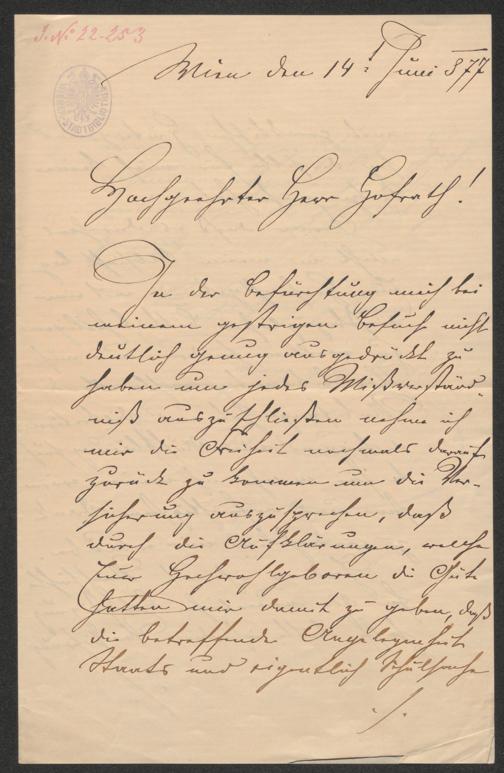 J. No 22-253
Wien den 14t Juni 877
Hochgeehrter Herr Hofrath!
In der Befürchtung mich bei
meinem gestrigen Besuch nicht
deutlich genug ausgedrückt zu
haben um jedes Mißverständ-
niß auszuschließen nehme ich
mir die Freiheit nochmals darauf
zurück zu kommen um die Ver-
sicherung auszusprechen, daß
durch die Aufklärungen, welche
Euer Hochwohlgeboren die Güte
hatten mir damit zu geben, daß
die betreffende Angelegenheit
Staats und eigentlich Schulsache
./.